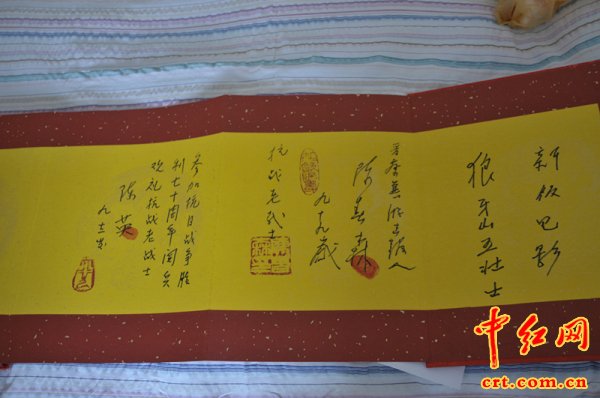 新版电影
狼牙山五壮士
晋察冀游击猎人
陈春森
九十九岁
抗战老战士
参加抗日战争胜
利七十周年阅兵
观礼抗战老战士
陈英
九十三岁
中红网
crt.com.cn